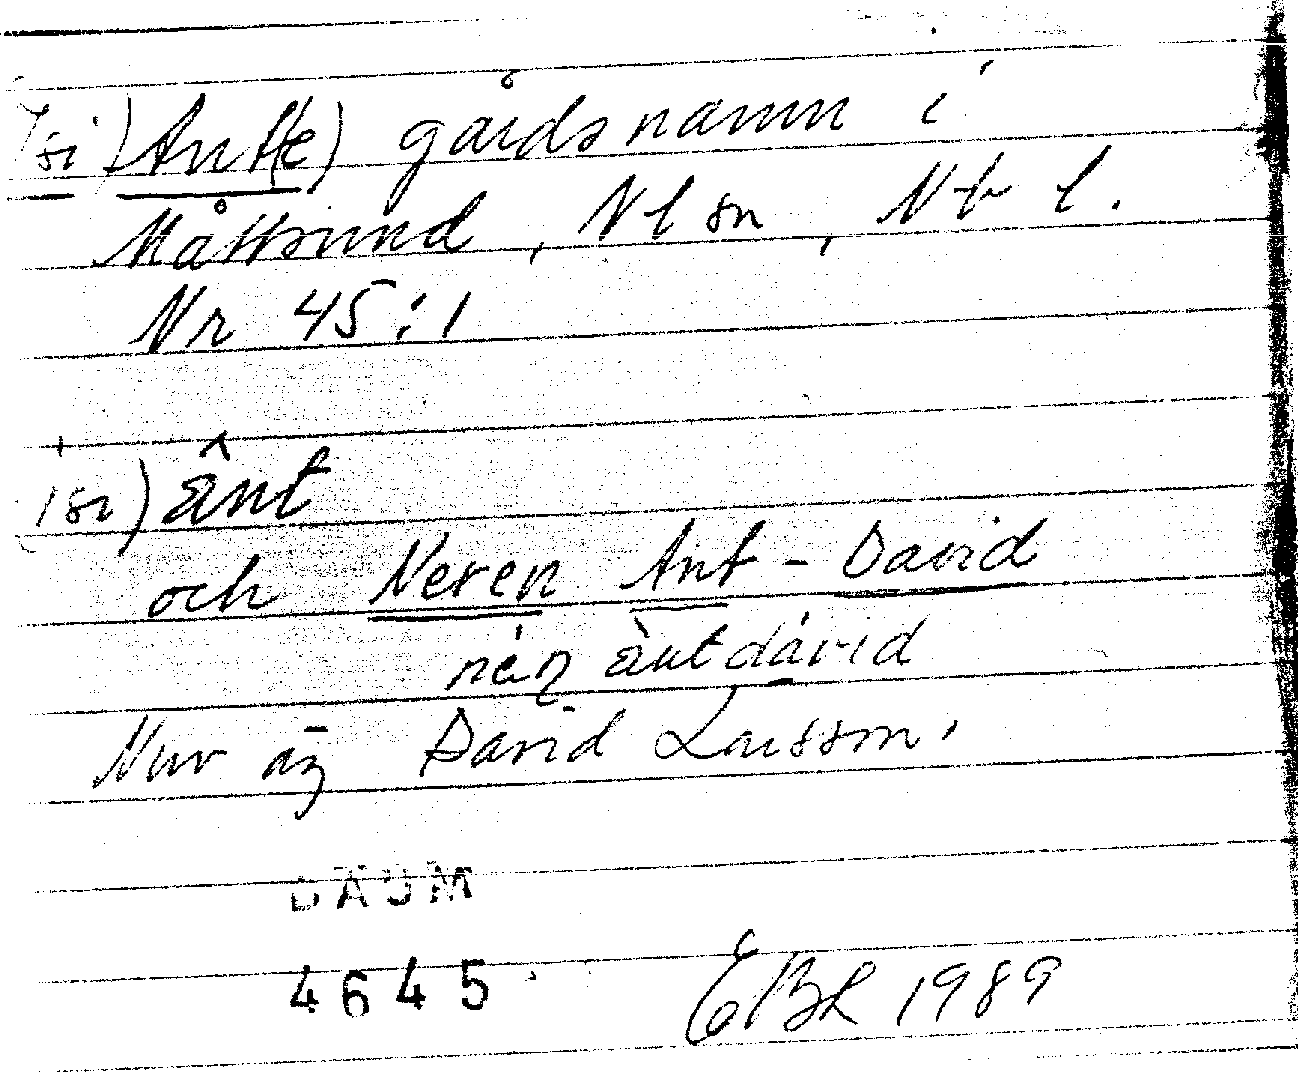 (si) Antt(e) gårdsnamn i
Måttsund, Nl sn, Nb l.
Nr 45:1
(si) ânt
och Neren Ant-David
nèṛ àntdàvid
Nuv äg David Larsson.
DAUM
4645 EBL 1989